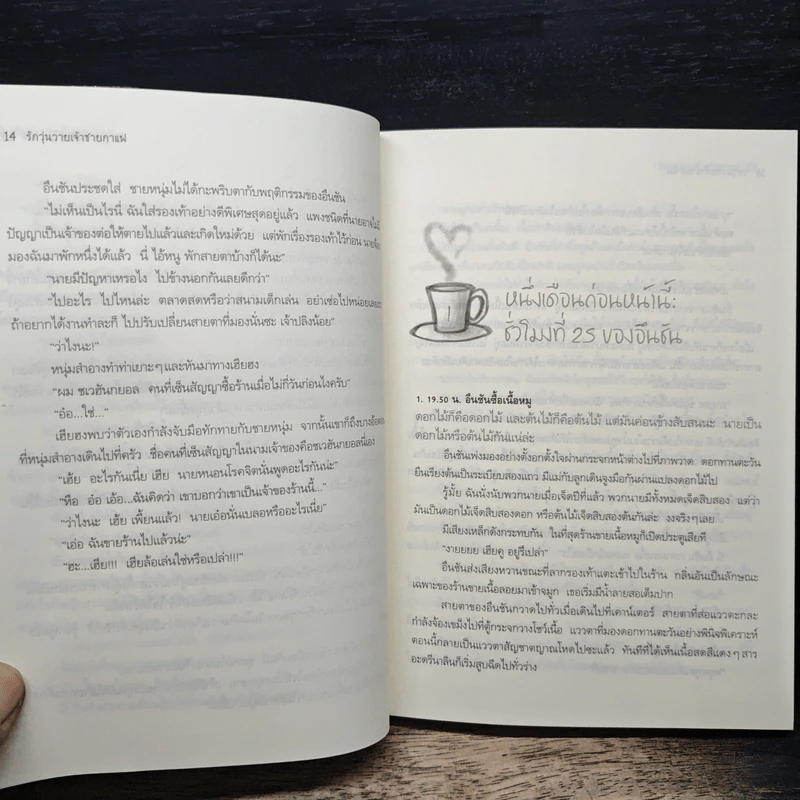 14 รักวุ่นวายเจ้าชายกาแฟ
อึนชันประชดใส่ ชายหนุ่มไม่ได้กะพริบตากับพฤติกรรมของอึนชัน
“ไม่เห็นเป็นไรนี่ ฉันใส่รองเท้าอย่างดีพิเศษสุดอยู่แล้ว แพงชนิดที่นายอาจไม่มี
ปัญญาเป็นเจ้าของต่อให้ตายไปแล้วและเกิดใหม่ด้วย แต่พักเรื่องรองเท้าไว้ก่อน
มองฉันมาพักหนึ่งได้แล้ว นี่ ไอ้หนู พักสายตาบ้างก็ได้นะ”
“นายมีปัญหาเหรอไง ไปข้างนอกกันเลยดีกว่า”
“ไปอะไร ไปไหนล่ะ ตลาดสดหรือว่าสนามเด็กเล่น อย่าเซ่อไปหน่อยเลยน่ะ
ถ้าอยากได้งานทำละก็ ไปปรับเปลี่ยนสายตาที่มองนั่นซะ เจ้าปลิงน้อย”
“ว่าไงนะ!”
หนุ่มสำอางทำท่าเยาะๆ และหันมาทางเฮียฮง
“ผม ชเวฮันกยอล คนที่เซ็นสัญญาซื้อร้านเมื่อไม่กี่วันก่อนไงครับ”
“อ๋อ...ใช่...”
เฮียฮงพบว่าตัวเองกำลังจับมือทักทายกับชายหนุ่ม จากนั้นเขาก็ถึงบางอ้อตอน
ที่หนุ่มสำอางเดินไปที่ครัว ชื่อคนที่เซ็นสัญญาในนามเจ้าของคือชเวฮันกยอลนี่เอง
“เฮ้ย อะไรกันเนี่ย เฮีย นายหนอนโรคจิตนั่นพูดอะไรกันน่ะ”
“หือ อ๋อ เอ้อ...ฉันคิดว่า เขาบอกว่าเขาเป็นเจ้าของร้านนี้...”
“ว่าไงนะ เฮ้ย เพี้ยนแล้ว! นายเอ๋อนั่นเบลอหรืออะไรเนี่ย”
“เอ่อ ฉันขายร้านไปแล้วน่ะ”
“ฮะ...เฮีย!!! เฮียล้อเล่นใช่หรือเปล่า!!!”
1
หนึ่งเดือนก่อนหน้านี้:
ชั่วโมงที่ 25 ของอึนชัน
1. 19.50 น. อึนชันซื้อเนื้อหมู
ดอกไม้ก็คือดอกไม้ และต้นไม้ก็คือต้นไม้ แต่มันค่อนข้างสับสนนะ นายเป็น
ดอกไม้หรือต้นไม้กันแน่ล่ะ
อึนชันเพ่งมองอย่างตั้งอกตั้งใจผ่านกระจกหน้าต่างไปที่ภาพวาด ดอกทานตะวัน
ยืนเรียงต้นเป็นระเบียบสองแถว มีแม่กับลูกเดินจูงมือกันผ่านแปลงดอกไม้ไป
รู้มั้ย ฉันนั่งนับพวกนายเมื่อเจ็ดปีที่แล้ว พวกนายมีทั้งหมดเจ็ดสิบสอง แต่ว่า
มันเป็นดอกไม้เจ็ดสิบสองดอก หรือต้นไม้เจ็ดสิบสองต้นกันล่ะ งงจริงๆ เลย
มีเสียงเหล็กดังกระทบกัน ในที่สุดร้านขายเนื้อหมูก็เปิดประตูเสียที
“งายยยย เฮียคู อยู่รึเปล่า”
อึนชันส่งเสียงหวานขณะที่ลากรองเท้าแตะเข้าไปในร้าน กลิ่นอันเป็นลักษณะ
เฉพาะของร้านขายเนื้อลอยมาเข้าจมูก เธอเริ่มมีน้ำลายสอเต็มปาก
สายตาของอึนชันกวาดไปทั่วเมื่อเดินไปที่เคาน์เตอร์ สายตาที่ส่อแววตะกละ
กำลังจ้องเขม็งไปที่ตู้กระจกวางโชว์เนื้อ แววตาที่มองดอกทานตะวันอย่างพินิจพิเคราะห์
ตอนนี้กลายเป็นแววตาสัญชาตญาณโหดไปซะแล้ว ทันทีที่ได้เห็นเนื้อสดสีแดงๆ สาร
อะดรีนาลินก็เริ่มสูบฉีดไปทั่วร่าง